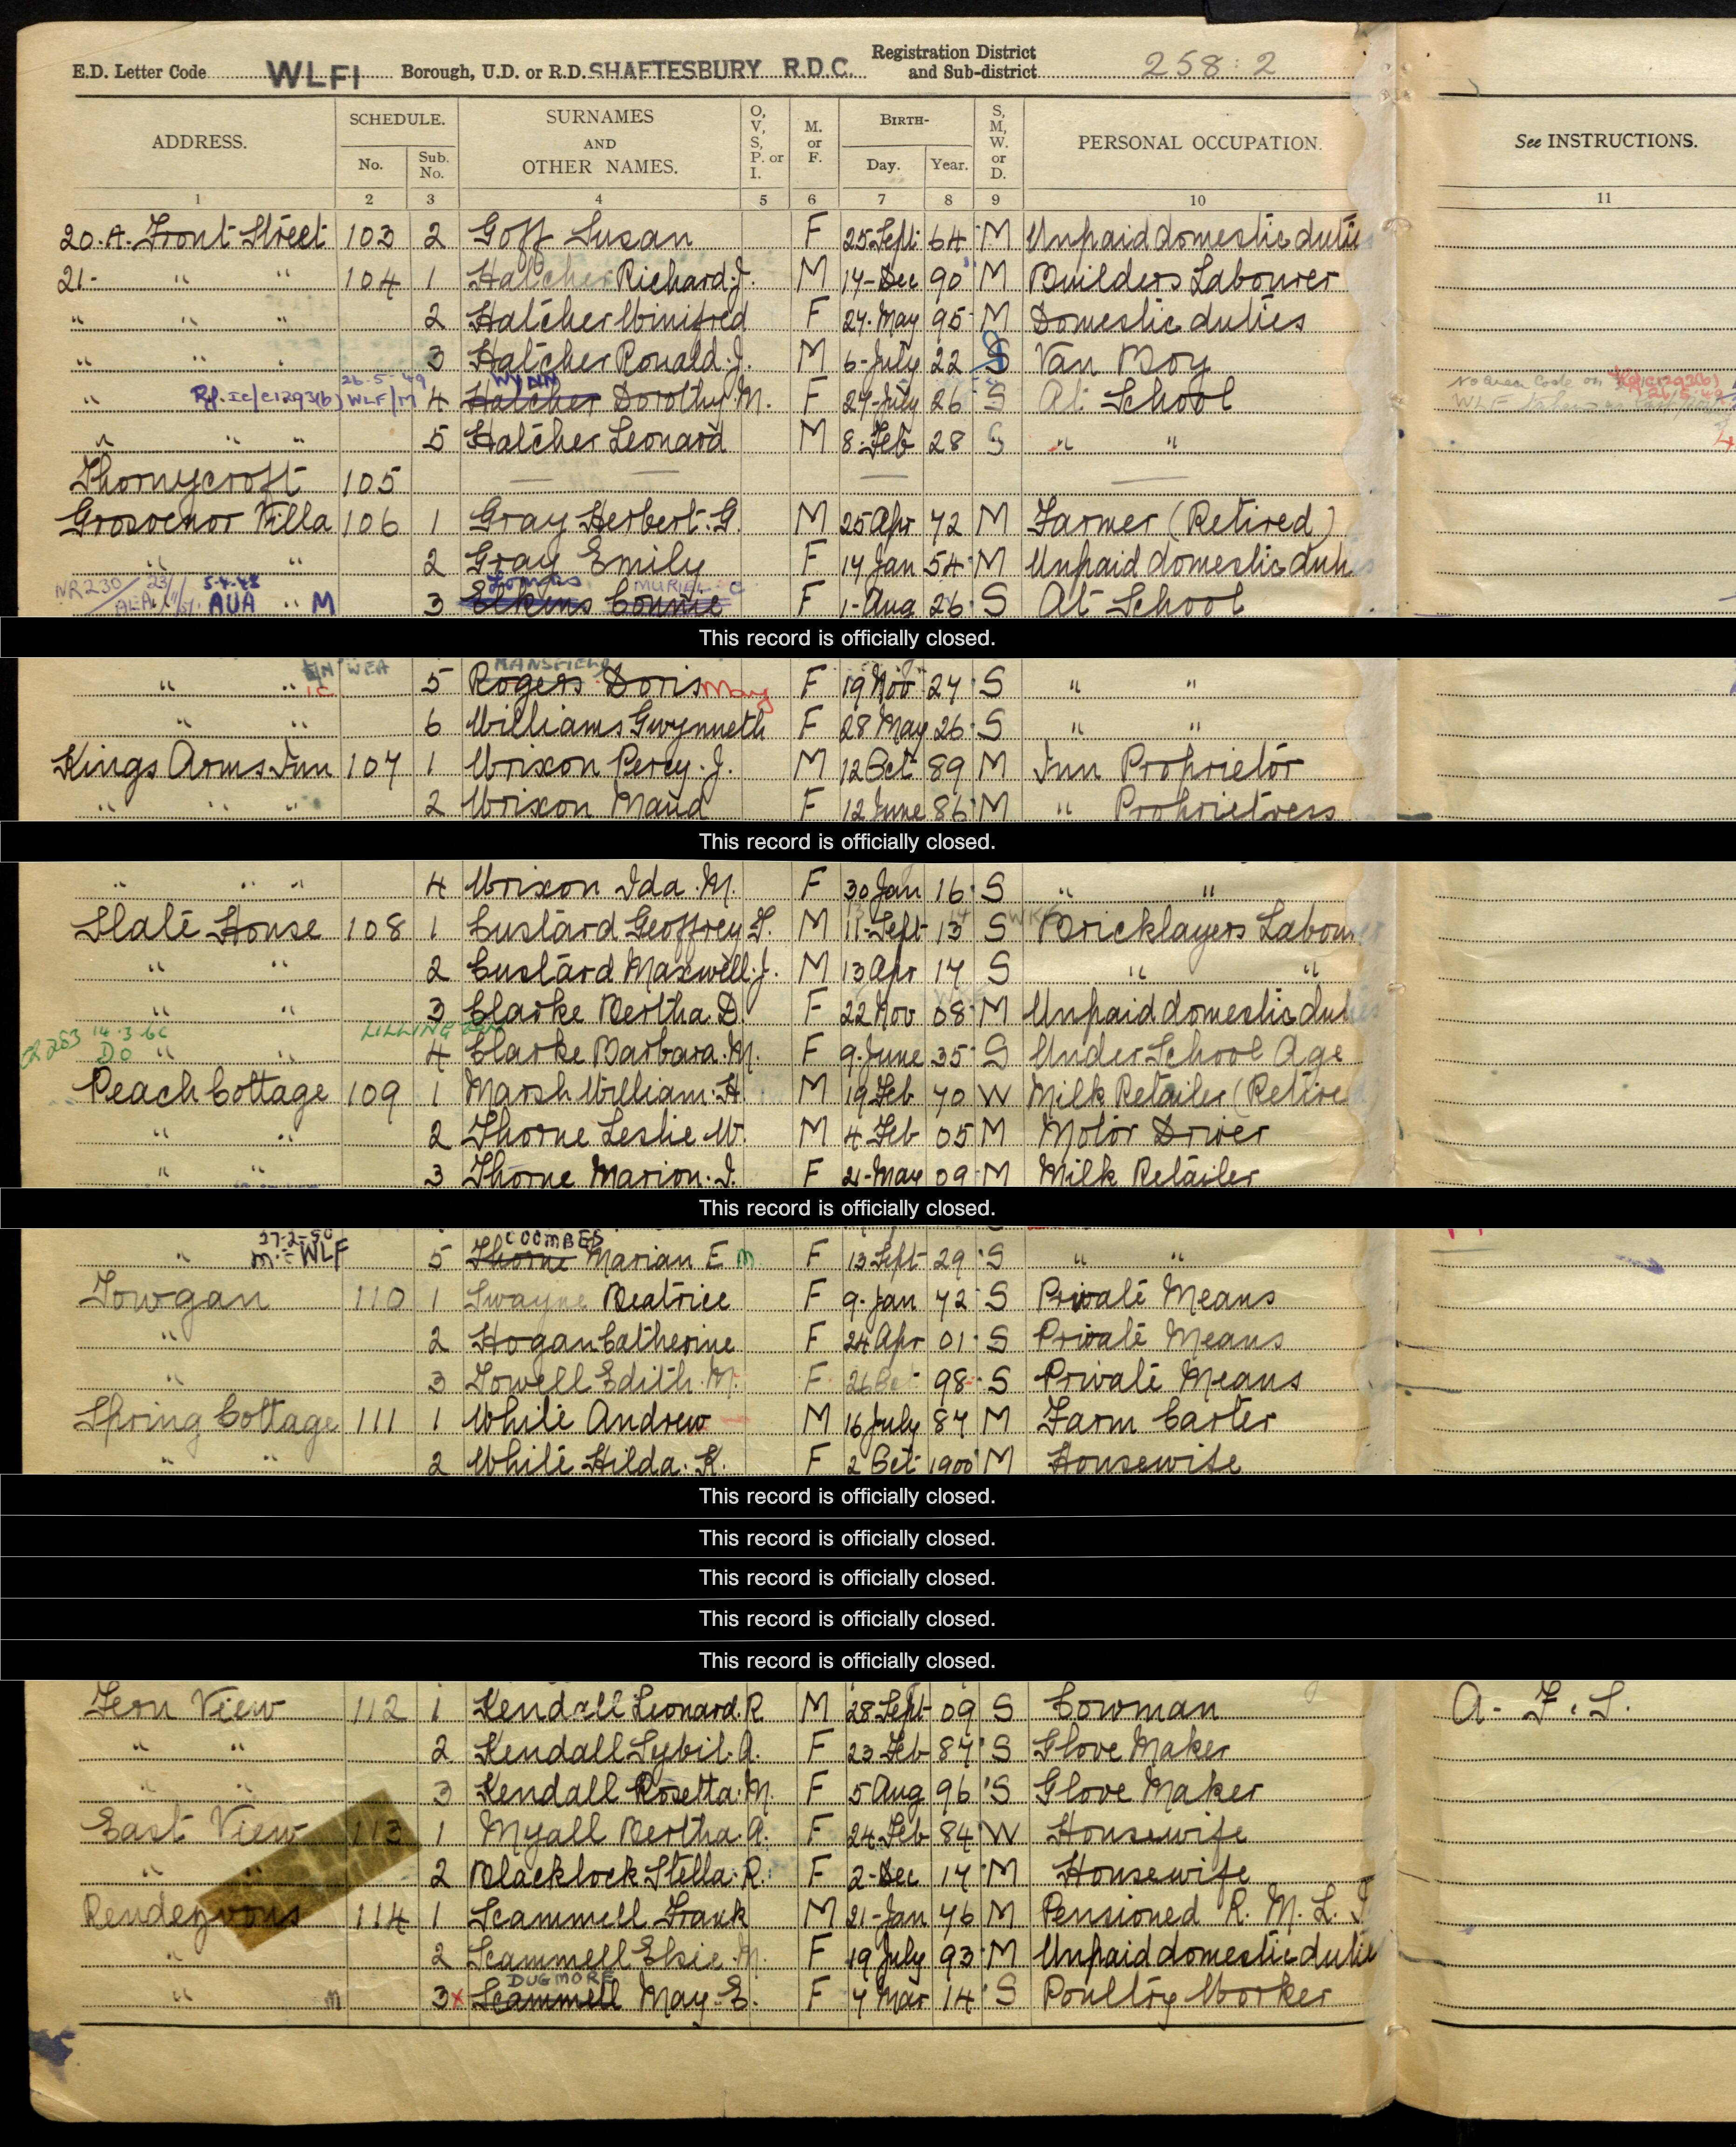 E.D. Letter Code WLFI Borough, U.D. or R.D. SHAFTESBURY R.D.C. Registration District and Sub-district 258:2
ADDRESS. SCHEDULE. No. Sub. No. SURNAMES AND OTHER NAMES. O, V, S, P. or I. M. or F. BIRTH- Day. Year. S, M, W. or D. PERSONAL OCCUPATION. See INSTRUCTIONS.
1 2 3 4 5 6 7 8 9 10 11
20.A. Front Street 103 2 Goff Susan F 25 Sept 64 M Unpaid domestic duties
21- " " 104 1 Hatcher Richard J. M 17 Dec 90 M Builders Labourer
" " " 2 Hatcher Winifred F 27 May 95 M Domestic duties
" " " 3 Hatcher Ronald J. M 6 July 22 S Van Boy
26-5-49 WYNN
" Rp.IC/C1293(b) WLF/M 4 Hatcher Dorothy M. F 27 July 26 S At School No area code on
" " " 5 Hatcher Leonard M 8 Feb 28 S " "
Thornycroft 105 — — —
Grosvenor Villa 106 1 Gray Herbert G. M 25 Apr 72 M Farmer (Retired)
" " 2 Gray Emily F 14 Jan 54 M Unpaid domestic duties
NR230 5-4-48 AUA " M 3 Elkins Connie MURIEL C F 1 Aug 26 S At School
This record is officially closed.
WEA MANSFIELD
" " 5 Rogers Doris May F 19 Nov 24 S " "
" " 6 Williams Gwynneth F 28 May 26 S " "
Kings Arms Inn 107 1 Wrixon Percy J. M 12 Oct 89 M Inn Proprietor
" " " 2 Wrixon Maud F 12 June 86 M " Proprietress
This record is officially closed.
" " " 4 Wrixon Ida M. F 30 Jan 16 S " "
Slate House 108 1 Custard Geoffrey T. M 11 Sept 13 S Bricklayers Labourer
" " 2 Custard Maxwell J. M 13 Apr 17 S " "
" " 3 Clarke Bertha D. F 22 Nov 08 M Unpaid domestic duties
14.3.66
DO " " 4 Clarke Barbara M. F 9 June 35 S Under School Age
Peach Cottage 109 1 Marsh William H M 19 Feb 70 W Milk Retailer (Retired)
" " 2 Thorne Leslie W. M 4 Feb 05 M Motor Driver
" " 3 Thorne Marion I. F 21 May 09 M Milk Retailer
This record is officially closed.
27-2-50 COOMBES
" M:-WLF 5 Thorne Marian E M F 13 Sept 29 S " "
Towgan 110 1 Swayne Beatrice F 9 Jan 72 S Private Means
" 2 Hogan Catherine F 24 Apr 01 S Private Means
" 3 Towell Edith M. F 26 Oct 98 S Private Means
Spring Cottage 111 1 White Andrew M 16 July 87 M Farm Carter
" " 2 White Hilda K. F 2 Oct 1900 M Housewife
This record is officially closed.
This record is officially closed.
This record is officially closed.
This record is officially closed.
This record is officially closed.
Fern View 112 1 Kendall Leonard R. M 28 Sept 09 S Cowman A. F. S.
" " 2 Kendall Sybil A. F 23 Feb 87 S Glove Maker
" " 3 Kendall Rosetta M. F 5 Aug 96 S Glove Maker
East View 113 1 Myall Bertha A. F 24 Feb 84 W Housewife
" " 2 Blacklock Stella R. F 2 Dec 17 M Housewife
Rendezvous 114 1 Scammell Frank M 21 Jan 76 M Pensioned R. M. L. I
" 2 Scammell Elsie M. F 19 July 93 M Unpaid domestic duties
DUGMORE
" m 3 x Scammell May E. F 7 Mar 14 S Poultry Worker